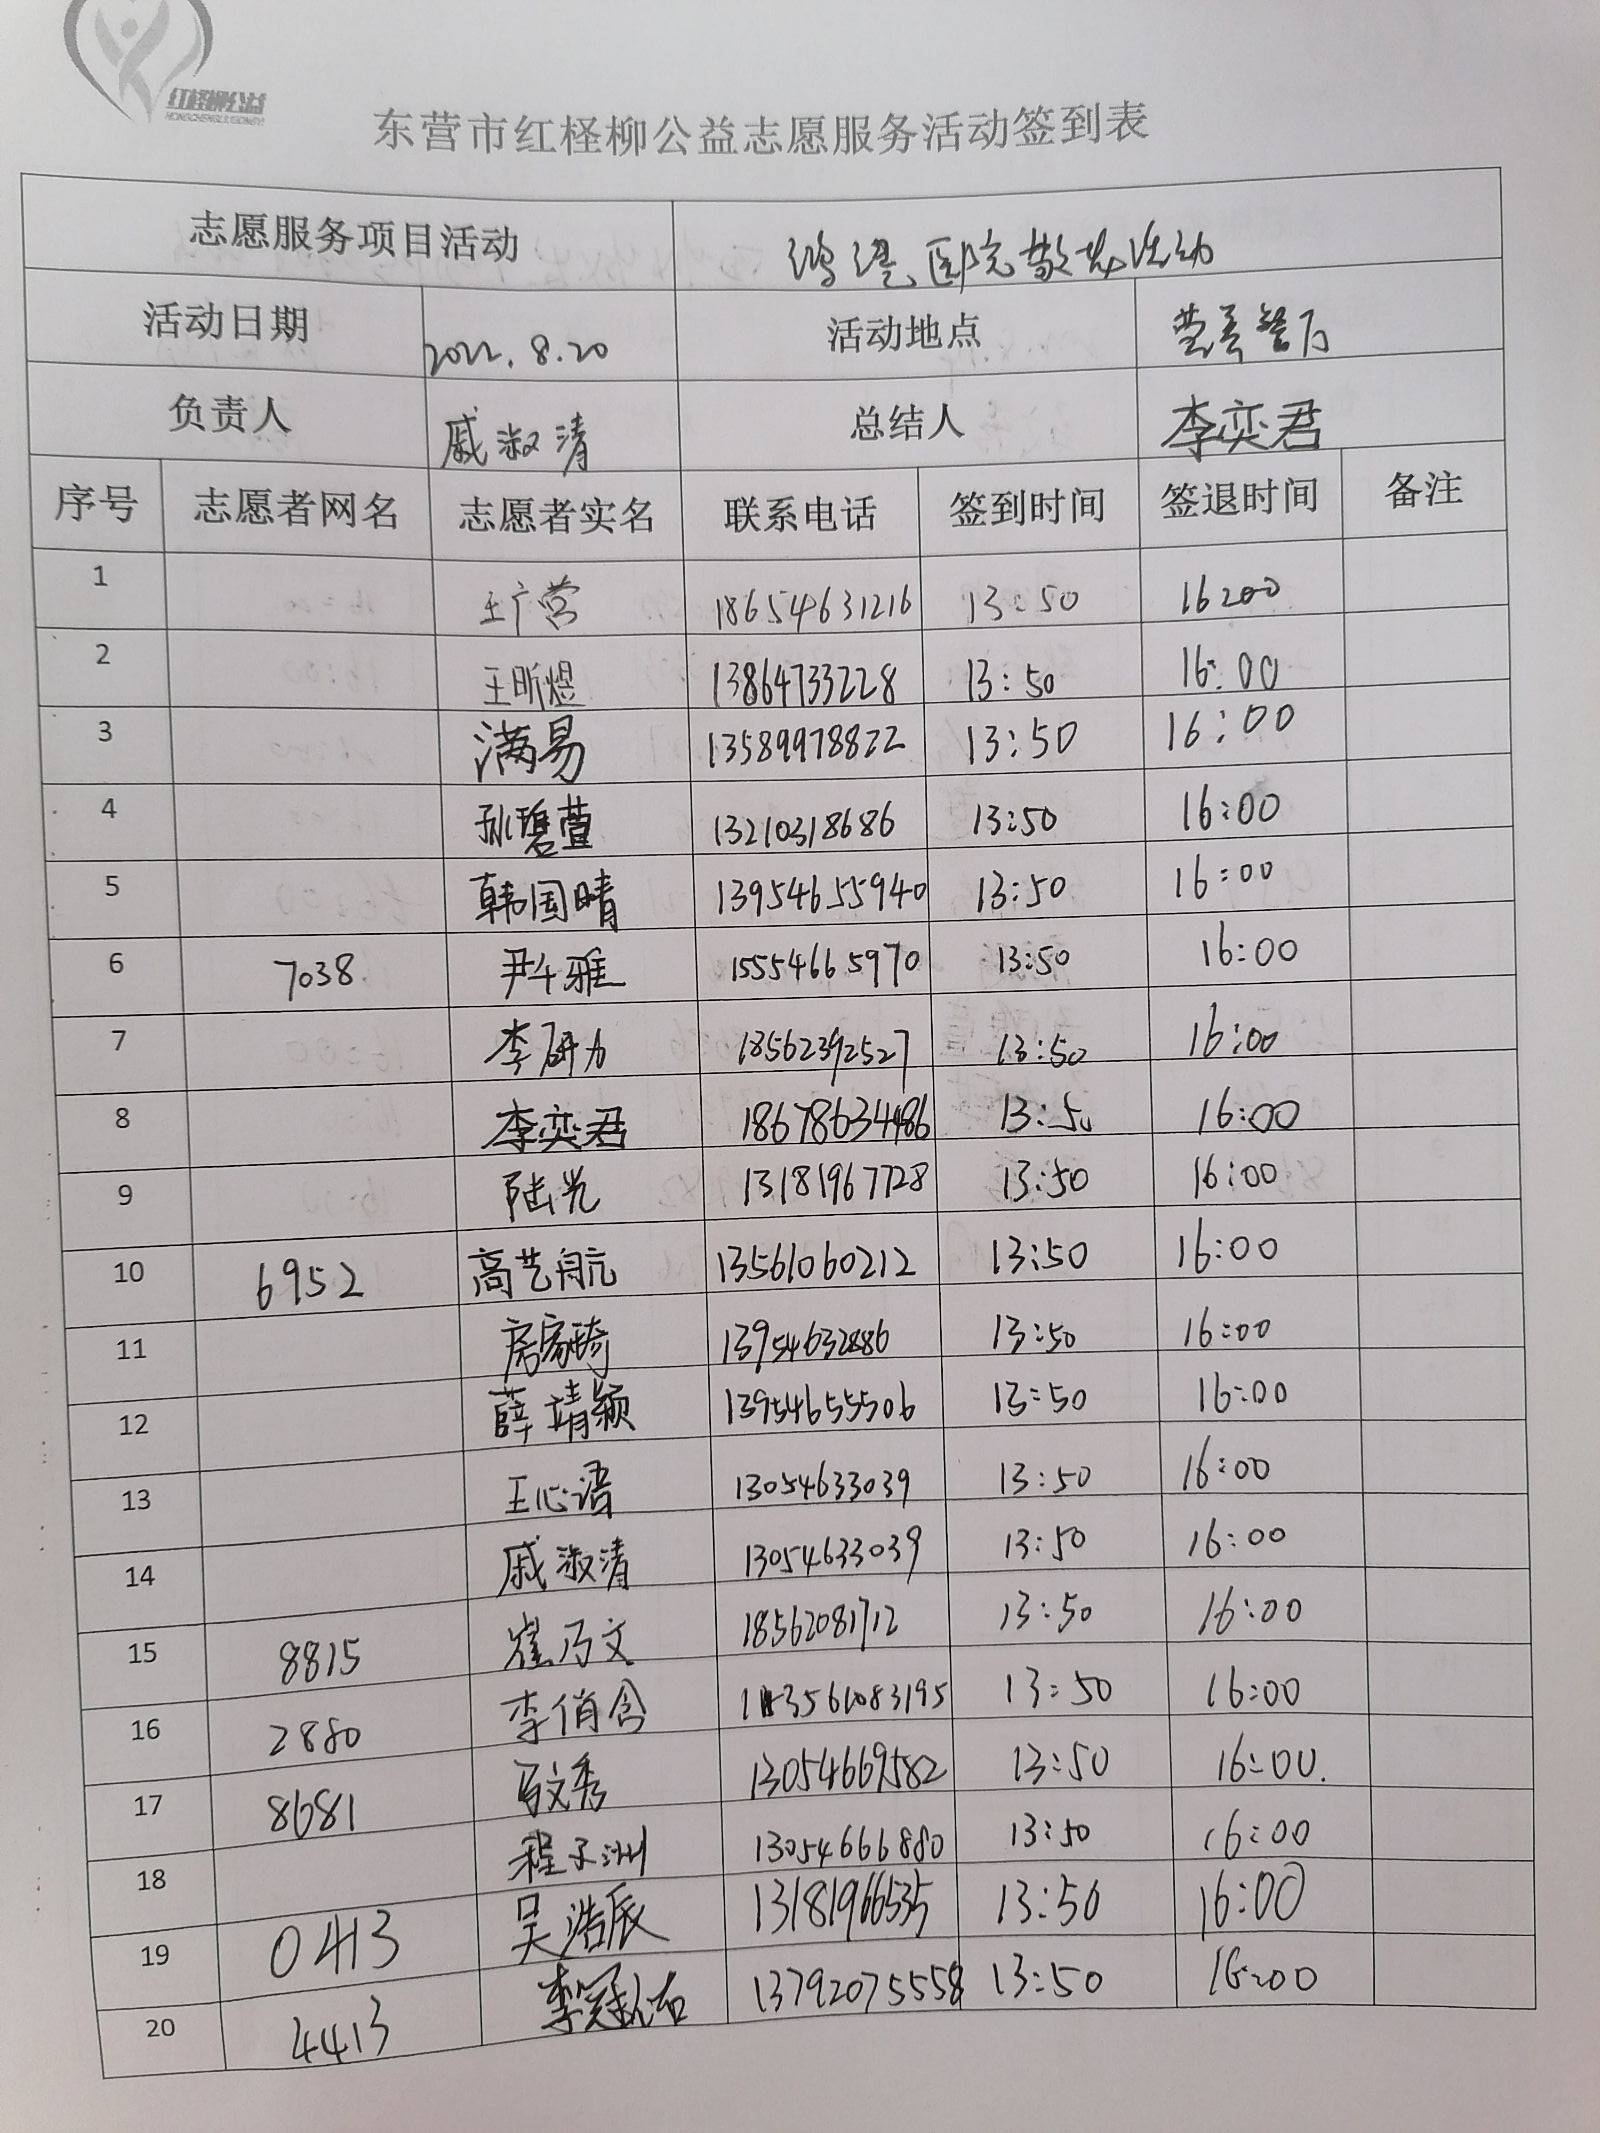 红柽柳公益
HONGCHENGLIUGONGYI
东营市红柽柳公益志愿服务活动签到表
志愿服务项目活动 医院敬老活动
活动日期 2022.8.20 活动地点
负责人 戚淑清 总结人 李奕君
序号 志愿者网名 志愿者实名 联系电话 签到时间 签退时间 备注
1 王广营 18654631216 13:50 16:00
2 王昕煜 13864733228 13:50 16:00
3 满易 13589978822 13:50 16:00
4 孙碧萱 13210318686 13:50 16:00
5 韩国晴 13954655940 13:50 16:00
6 7038 尹千雅 15554665970 13:50 16:00
7 李研力 18562392527 13:50 16:00
8 李奕君 18678634486 13:50 16:00
9 陆光 13181967728 13:50 16:00
10 6952 高艺航 13561060212 13:50 16:00
11 房家琦 13954632886 13:50 16:00
12 薛靖颖 13954655506 13:50 16:00
13 王心语 13054633039 13:50 16:00
14 戚淑清 13054633039 13:50 16:00
15 8815 崔乃文 18562081712 13:50 16:00
16 2880 李俏含 13561083195 13:50 16:00
17 8681 13054669582 13:50 16:00
18 程子洲 13054666880 13:50 16:00
19 0413 吴浩辰 13181966535 13:50 16:00
20 4413 李冠 13792075558 13:50 16:00